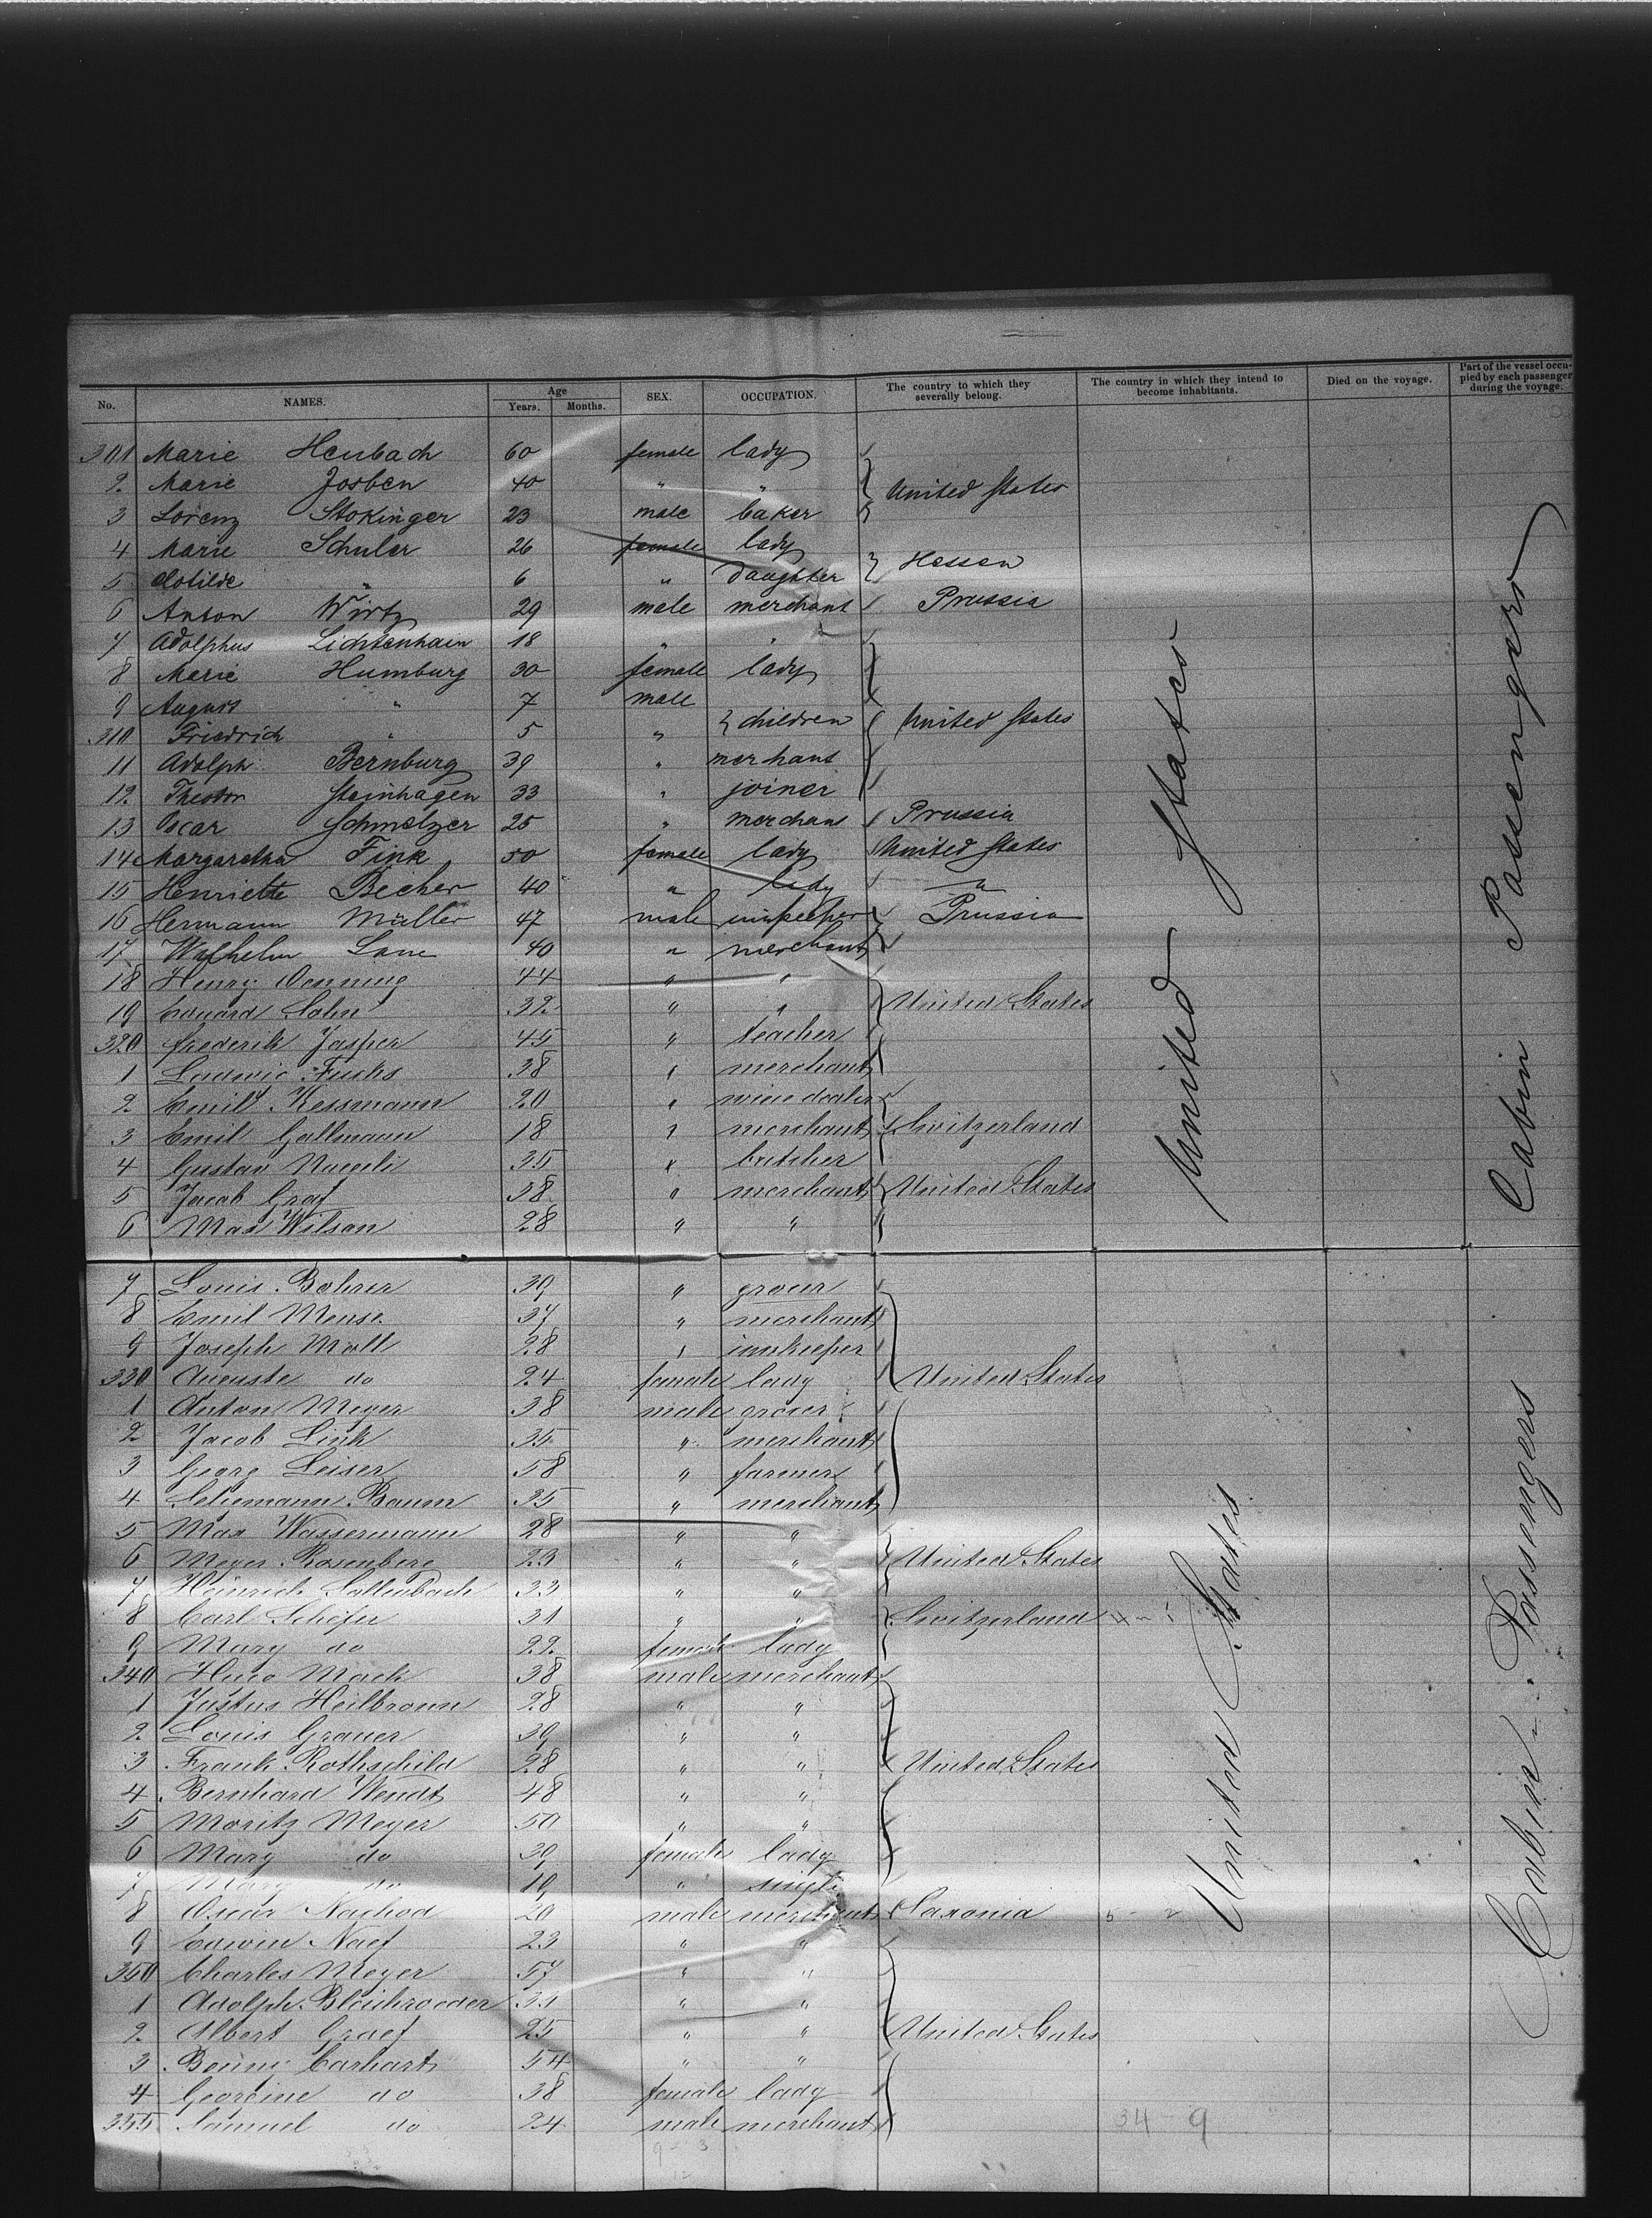 No. NAMES. Age Years. Months. SEX. OCCUPATION. The country to which they severally belong. The country in which they intend to become inhabitants. Died on the voyage. Part of the vessel occupied by each passenger during the voyage.
301 Marie Heubach 60 female lady
2 Marie Josben 40 " " United States
3 Lorenz Stokinger 23 male baker
4 Marie Schuler 26 female lady
5 Clotilde " 6 " daughter Hessen
6 Anton Wirtz 29 male merchant Prussia
7 Adolphus Lichtenhain 18 " "
8 Marie Humburg 30 female lady
9 August " 7 male
310 Friedrich " 5 " children United States
11 Adolph Bernburg 39 " merchant
12 Theodor Steinhagen 33 " joiner
13 Oscar Schmelzer 25 " merchant Prussia
14 Margaretha Fink 50 female lady United States
15 Henriette Becher 40 " lady "
16 Hermann Müller 47 male innkeeper Prussia
17 Wilhelm Lane 40 " merchant
18 Henry Oenning 44 " "
19 Eduard Sohn 32 " " United States
320 Frederik Jasper 45 " teacher
1 Ludwic Fuchs 38 " merchant
2 Emil Kessmann 20 " wine dealer
3 Emil Gallmann 18 " merchant Switzerland
4 Gustav Naegeli 35 " butcher
5 Jacob Graf 38 " merchant United States
6 Max Wilson 28 " "
7 Louis Bohrer 39 " grocer
8 Emil Mense 37 " merchant
9 Joseph Moll 28 " innkeeper
330 Auguste do 24 female lady United States
1 Anton Meyer 38 male grocer
2 Jacob Link 35 " merchant
3 Georg Leiser 58 " farmer
4 Seliemann Baum 35 " merchant
5 Max Wassermann 28 " "
6 Meyer Rosenberg 23 " " United States
7 Heinrich Sallenbach 33 " "
8 Carl Schöfer 31 " " Switzerland
9 Mary do 22 female lady
340 Hugo Mack 38 male merchant
1 Justus Heilbronn 28 " "
2 Louis Grauer 39 " "
3 Frank Rothschild 28 " " United States
4 Bernhard Wendt 48 " "
5 Moritz Meyer 50 " "
6 Mary do 39 female lady
7 Mary do 19 " single
8 Oscar Nachod 20 male merchant Saxonia
9 Edwin Naef 23 " "
350 Charles Meyer 57 " "
1 Adolph Bleichroeder 31 " "
2 Albert Graef 25 " " United States
3 Benny Carhart 54 " "
4 Georgine do 38 female lady
355 Samuel do 24 male merchant
34 - 9
United States
Cabin Passengers
United States
Cabin Passengers